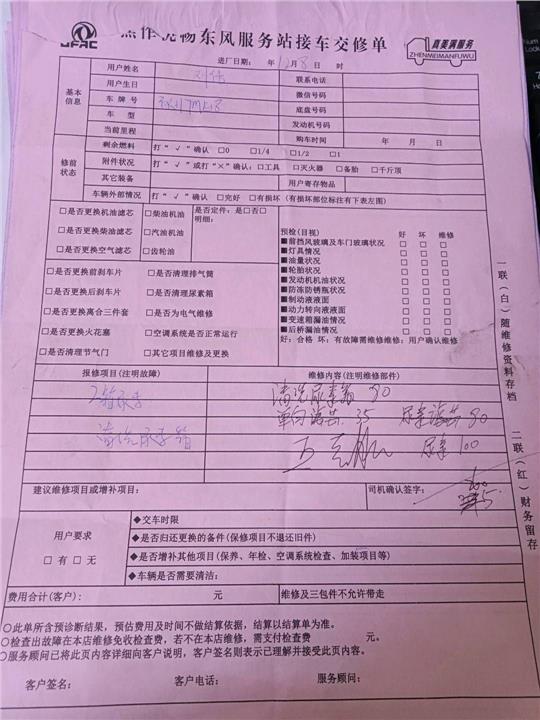 DFAC
焦作悦畅东风服务站接车交修单
真美满服务
ZHENMEIMANFUWU
进厂日期: 年 12月 8日 时
基本信息
用户姓名 联系电话
用户生日 微信号码
车牌号 底盘号码
车型 发动机号码
当前里程 购车时间 年 月 日
修前状态
剩余燃料 打“√”确认 □0 □1/4 □1/2 □1
附件状况 打“√”或打“×”确认:□工具 □灭火器 □备胎 □千斤顶
其它装备 用户寄存物品
车辆外部情况 打“√”确认 □完好 □有损坏(有损坏部位标注有下表左图)
□是否更换机油滤芯 □柴油机油 是否定件:是□否□
明细:
□是否更换柴油滤芯 □汽油机油
□是否更换空气滤芯 □齿轮油
□是否更换前刹车片 □是否清理排气筒
□是否更换后刹车片 □是否清理尿素箱
□是否更换离合三件套 □是否为电气维修
□是否更换火花塞 □空调系统是否正常运行
□是否清理节气门 □其它项目维修及更换
预检(目视) 好 坏 维修
■前挡风玻璃及车门玻璃状况 □ □ □
■灯具情况 □ □ □
■油量状况 □ □ □
■轮胎状况 □ □ □
■发动机机油状况 □ □ □
■防冻防锈瓶状况 □ □ □
■制动液液面 □ □ □
■动力转向液液面 □ □ □
■变速箱漏油情况 □ □ □
■后桥漏油情况 □ □ □
好:合格 坏:有故障需维修维修:用户确认维修
报修项目(注明故障) 维修内容(注明维修部件)
清洗尿素箱 90
单向滤芯 35 尿素滤芯 90
清洗尿素箱
尿素 100
建议维修项目或增补项目: 司机确认签字:
用户要求
□有 □无
◆交车时限
◆是否归还更换的备件(保修项目不退还旧件)
◆是否增补其他项目(保养、年检、空调系统检查、加装项目等)
◆车辆是否需要清洁:
费用合计(客户): 元 维修及三包件不允许带走
○此单所含预诊断结果,预估费用及时间不做结算依据,结算以结算单为准。
○检查出故障在本店维修免收检查费,若不在本店维修,需支付检查费 元。
○服务顾问已将此页内容详细向客户说明,客户签名则表示已理解并接受此页内容。
客户签名: 客户电话: 服务顾问:
一联(白)随维修资料存档
二联(红)财务留存